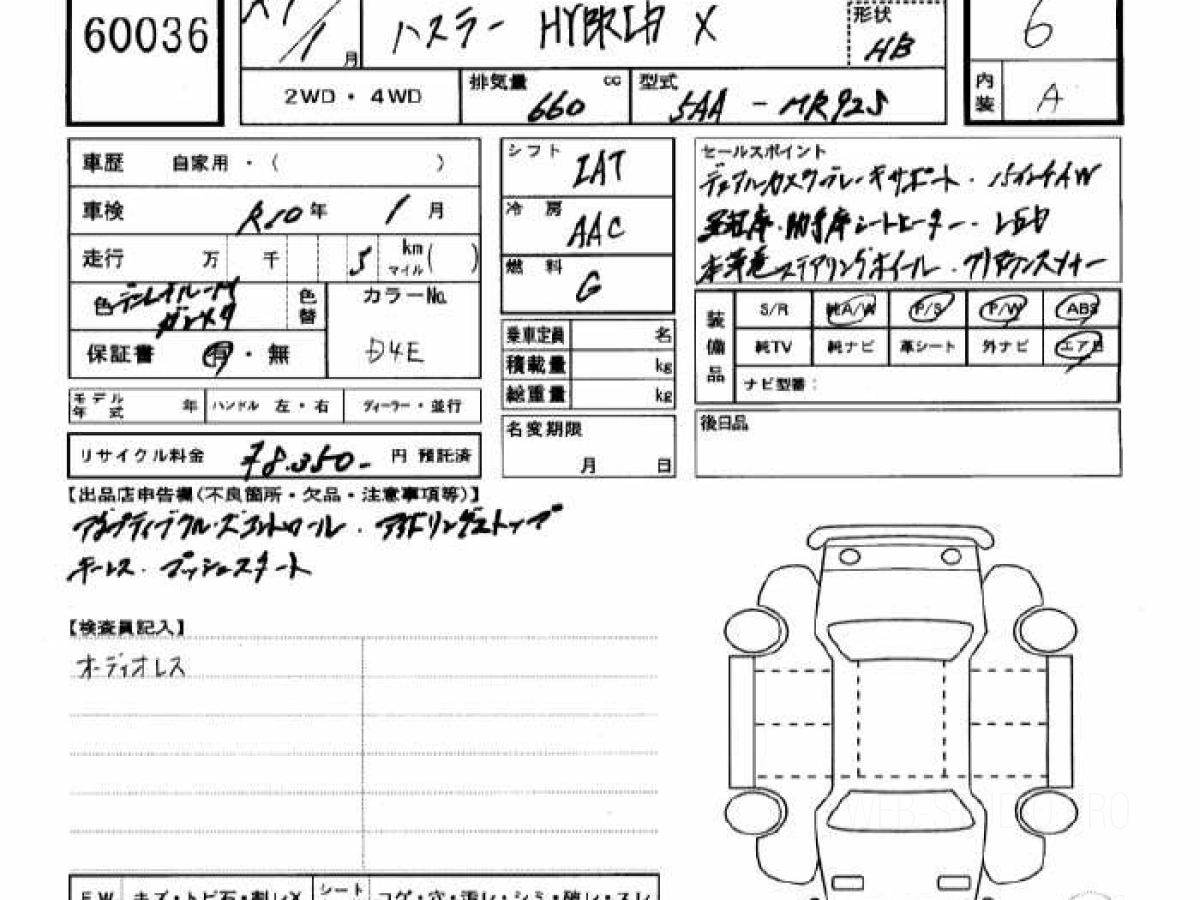 60036
R7/1月 ハスラー HYBRID X 形状 HB
6
2WD・4WD 排気量 660 cc 型式 5AA-MR92S
内装 A
車歴 自家用・( )
車検 R10年 1月
走行 万 千 5 km マイル ( )
色 デニムブルーM ガンメタ 色替 カラーNo. D4E
保証書 有・無
モデル年式 年 ハンドル 左・右 ディーラー・並行
リサイクル料金 ¥8.350- 円 預託済
シフト IAT
冷房 AAC
燃料 G
乗車定員 名
積載量 kg
総重量 kg
名変期限
月 日
セールスポイント
デュアルカメラブレーキサポート・15インチAW
運転席・助手席シートヒーター・LED
本革巻ステアリングホイール・クリアランスソナー
装備品 S/R 純A/W P/S P/W ABS
純TV 純ナビ 革シート 外ナビ エアB
ナビ型番:
後日品
【出品店申告欄(不良箇所・欠品・注意事項等)】
アダプティブクルーズコントロール・アイドリングストップ
キーレス・プッシュスタート
【検査員記入】
オーディオレス
FW キズ・トビ石・割レX シート コゲ・穴・汚レ・シミ・破レ・スレ